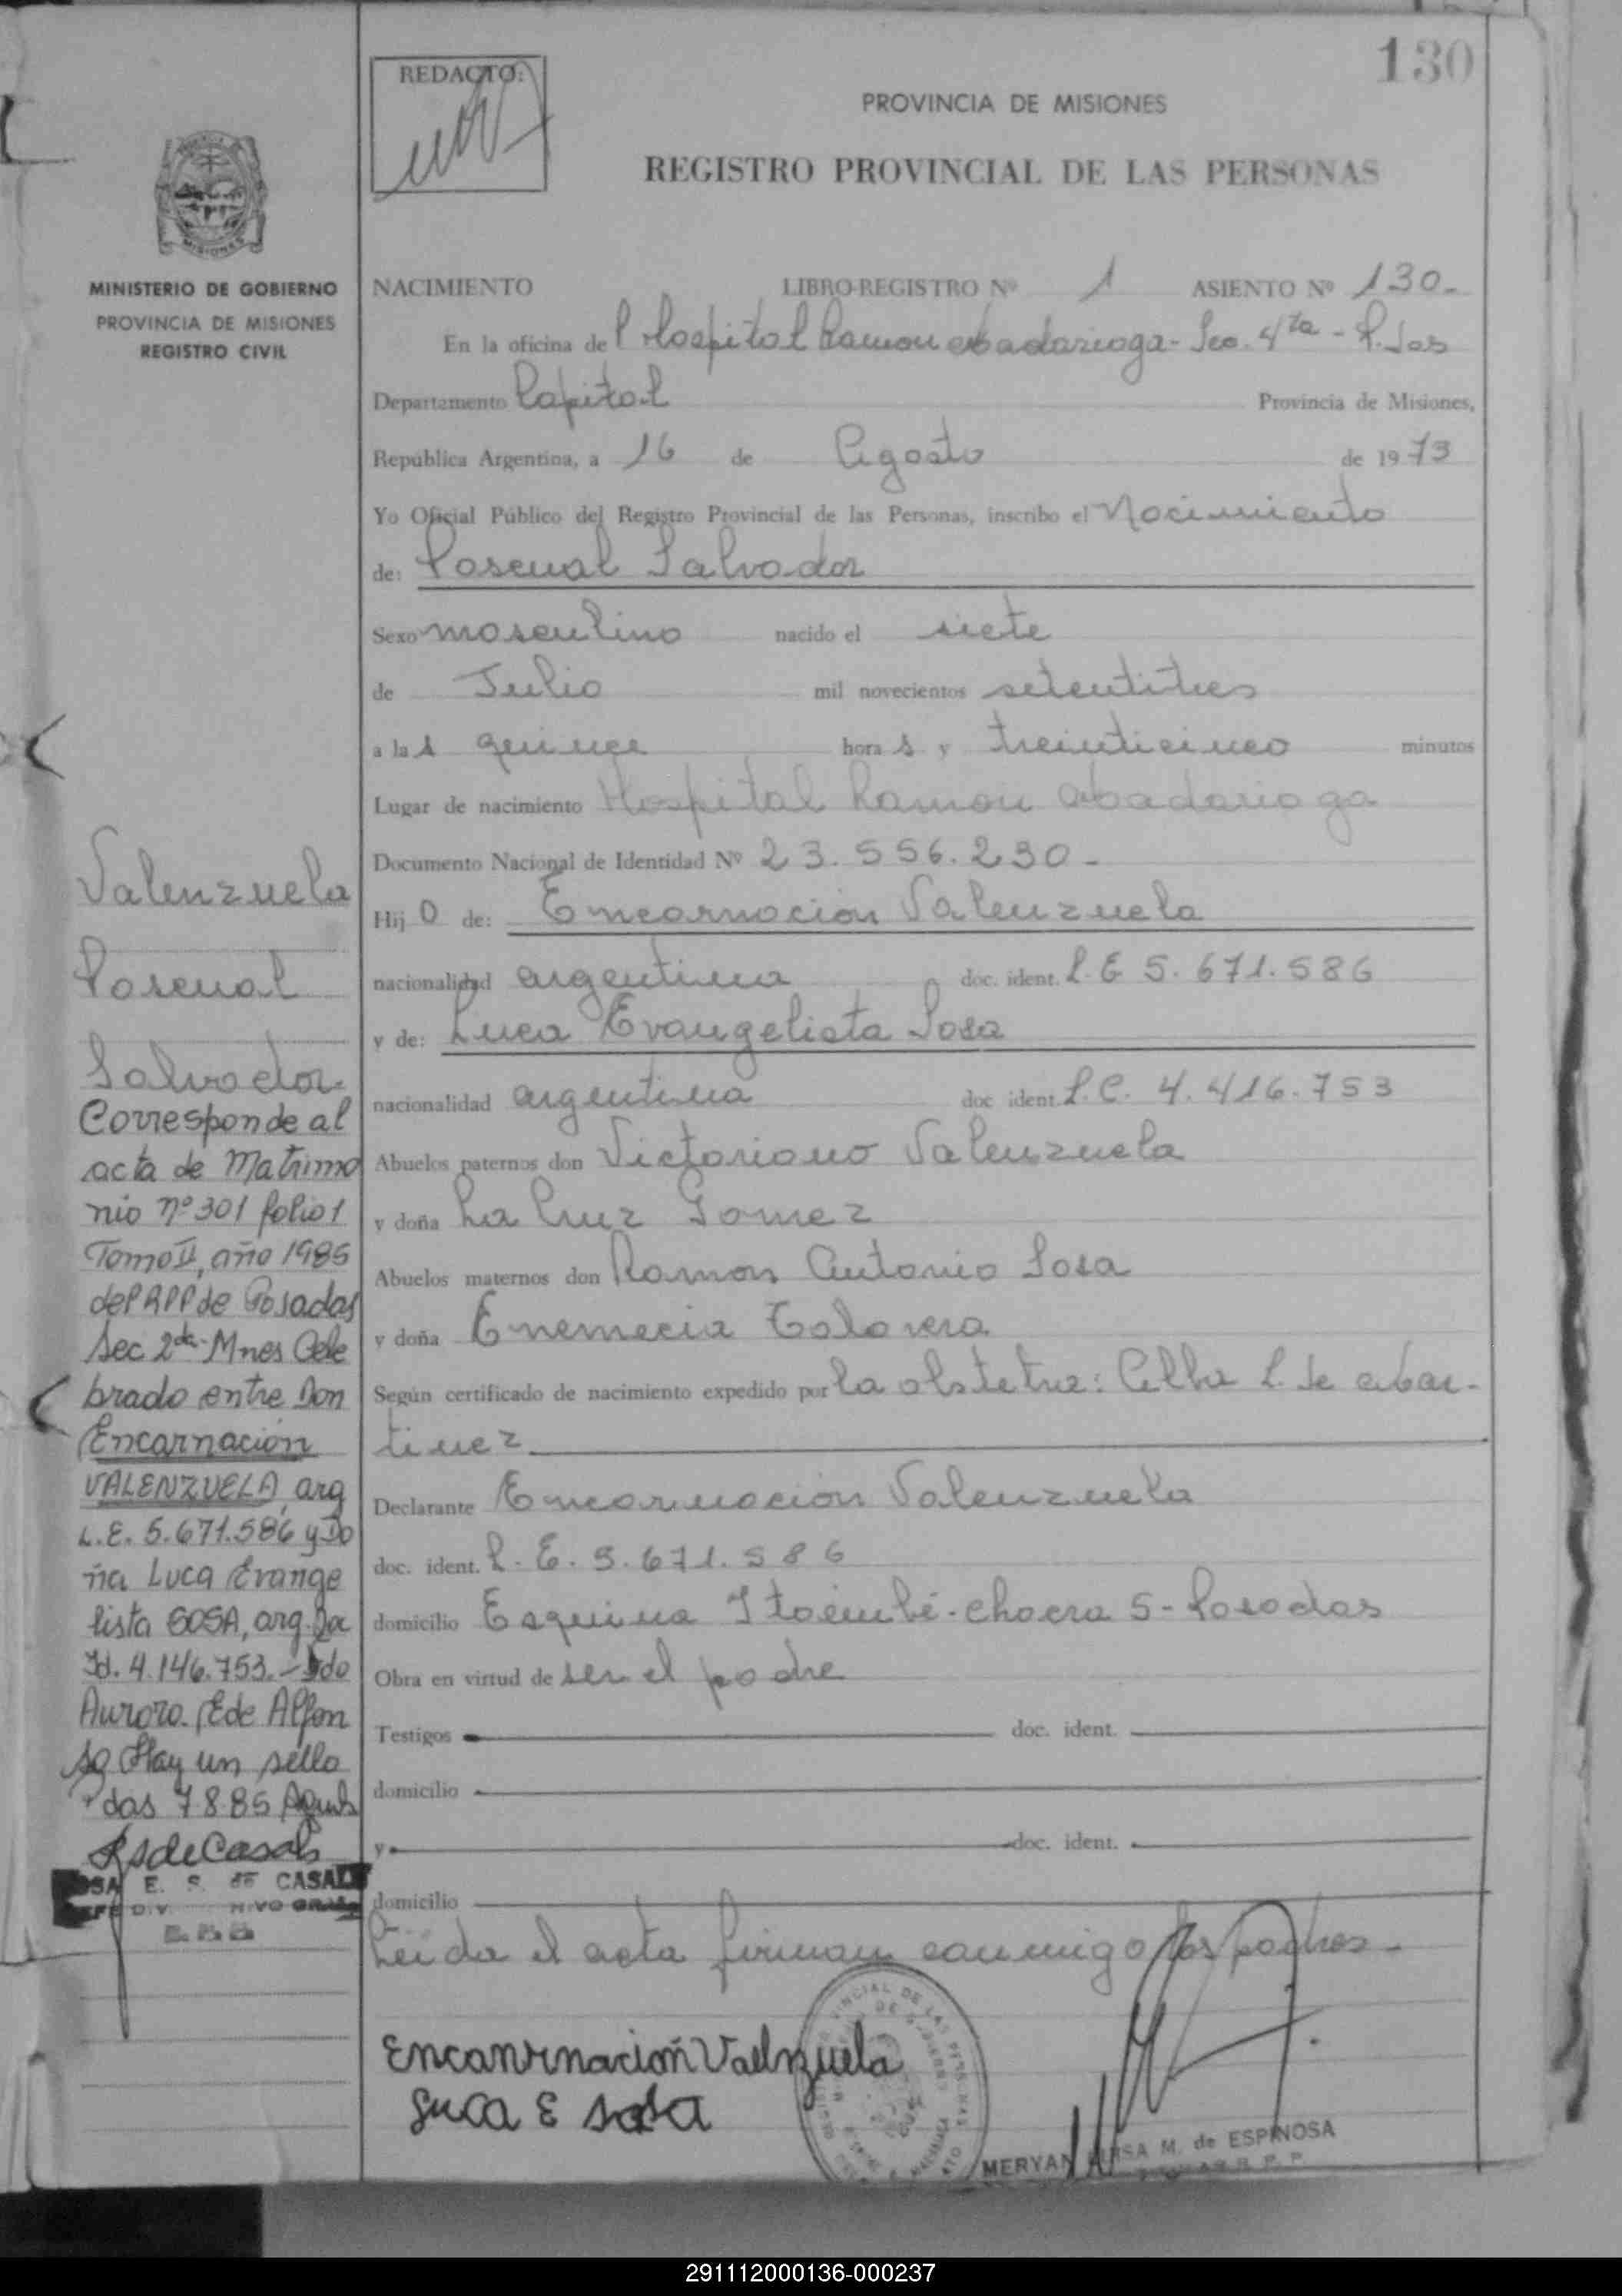 130
REDACTO:
PROVINCIA DE MISIONES
REGISTRO PROVINCIAL DE LAS PERSONAS
MISIONES
MINISTERIO DE GOBIERNO
PROVINCIA DE MISIONES
REGISTRO CIVIL
NACIMIENTO LIBRO-REGISTRO Nº 1 ASIENTO Nº 130.-
En la oficina de l Hospital Ramon Madariaga - Sec. 4ta - P.das
Departamento Capital Provincia de Misiones,
República Argentina, a 16 de Agosto de 1973
Yo Oficial Público del Registro Provincial de las Personas, inscribo el Nacimiento
de: Pascual Salvador
Sexo masculino nacido el siete
de Julio mil novecientos setentitres
a las quince horas y treinticinco minutos
Lugar de nacimiento Hospital Ramon Madariaga
Documento Nacional de Identidad Nº 23.556.230-
Hijo de: Encarnacion Valenzuela
nacionalidad argentina doc. ident. L.E 5.671.586
y de: Luca Evangelista Sosa
nacionalidad argentina doc ident. L.C. 4.416.753
Abuelos paternos don Victoriano Valenzuela
y doña La Cruz Gomez
Abuelos maternos don Ramon Antonio Sosa
y doña Enemecia Talavera
Según certificado de nacimiento expedido por la obstetra: Celba L. de Mar-
tinez
Declarante Encarnacion Valenzuela
doc. ident. L.E. 5.671.586
domicilio Esquina Itaembé - chacra 5 - Posadas
Obra en virtud de ser el padre
Testigos doc. ident.
domicilio
y doc. ident.
domicilio
Leida el acta firman conmigo los padres.-
Encanrnacioñ Vaelnzuela
Luca E sosa
MERYAN LUISA M. de ESPINOSA
Valenzuela
Pascual
Salvador
Corresponde al
acta de Matrimo
nio nº 301 folio 1
Tomo II, año 1985
del RPP de Posadas
Sec 2da - Mnes Cele
brado entre Don
Encarnación
VALENZUELA, arg
L.E. 5.671.586 y Do
ña Luca Evange
lista SOSA, arg.
Id. 4.146.753.- Fdo
Aurora E de Alfon
so Hay un sello
das 7.8.85
RS de Casals
E. S. de CASALS
DIV.
291112000136-000237